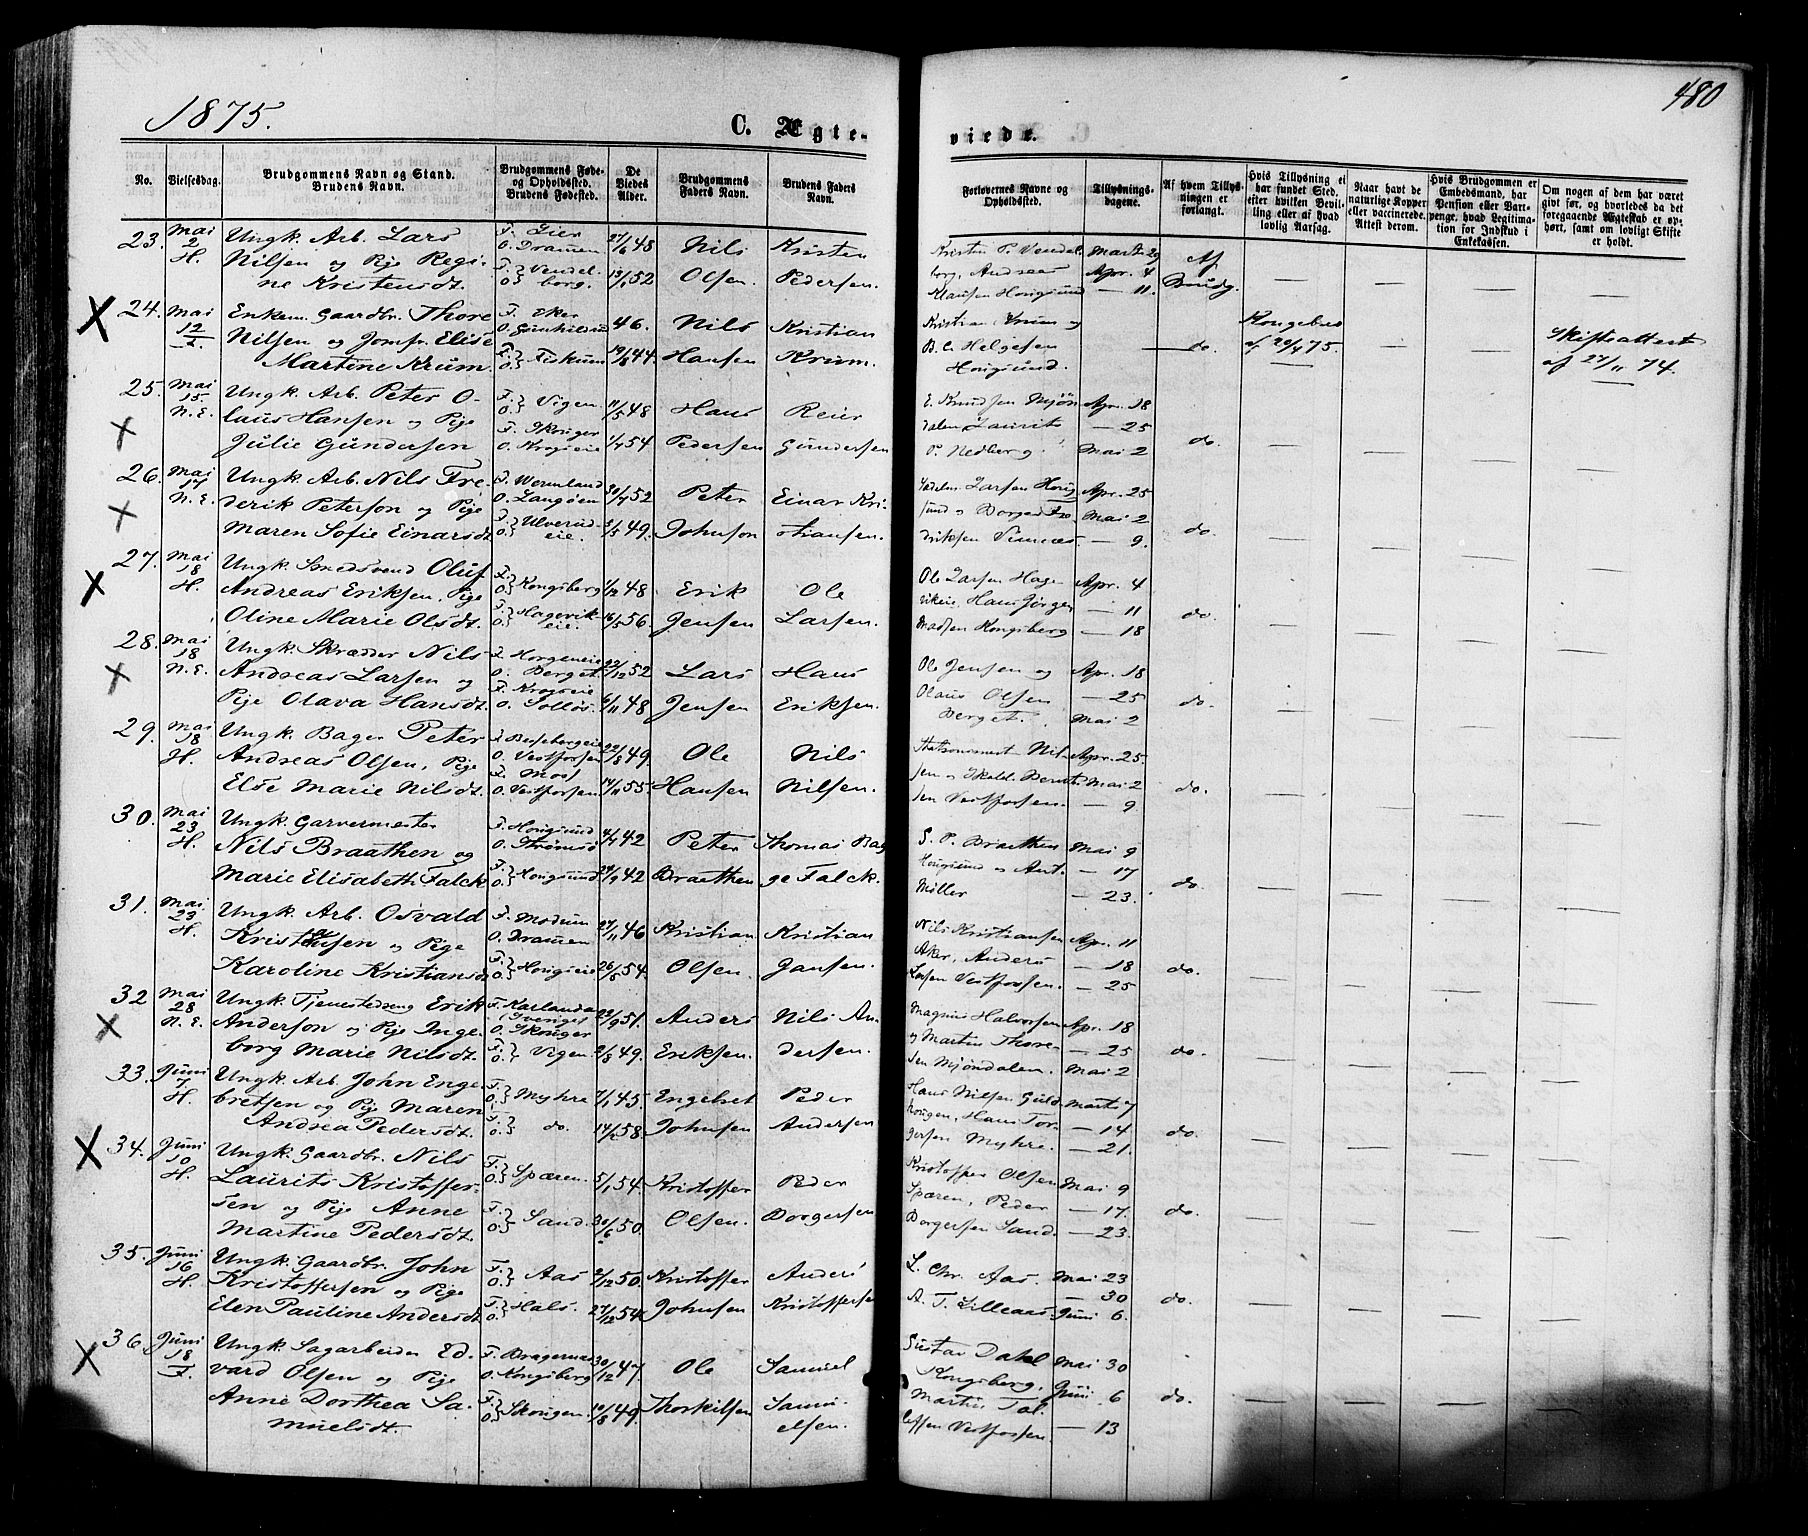 1875.
480
C. Ægte-
viede.
No.
Vielsesdag.
Brudgommens Navn og Stand.
Brudens Navn.
Brudgommens Føde-
og Opholdssted.
Brudens Fødested.
De
Viedes
Alder.
Brudgommens
Faders Navn.
Brudens Faders
Navn.
Forlovernes Navne og
Opholdssted.
Tillysnings-
dagene.
Af hvem Tillys-
ningen er
forlangt.
Hvis Tillysning ei
har fundet Sted,
efter hvilken Bevil-
ling eller af hvad
lovlig Aarsag.
Naar havt de
naturlige Kopper
eller vaccinerede.
Attest derom.
Hvis Brudgommen er
Embedsmand, har
Pension eller Vart-
penge, hvad Legitima-
tion for Indskud i
Enkekassen.
Om nogen af dem har været
givt før, og hvorledes da det
foregaaende Ægteskab er op-
hørt, samt om lovligt Skifte
er holdt.
23. Mai 2 H. Ungk. Arb. Lars F. Lier 27/6 48 Nils Kristen Kristen P. Vendel- Marts 29 Af
Nilsen og Pige Regi- O. Drammen borg, Andreas Apr. 4 Brudg.
ne Kristensdt. F. O. Vendelborg. 13/1 52 Olsen. Pedersen. Klausen Hougsund — 11. — — — —
24. Mai 12 F. Enkem. Gaardbr. Thore F. Eker 46. Nils Kristian Kristian Krum og Kongebrev Skifteattest
Nilsen og Jomfr. Elise O. Gunhilsrud B. C. Helgesen — do. af 20/4 75. — — af 27/11 74.
Martine Krum. F. O. Fiskum 19/6 44. Hansen Krum. Hougsund. — —
25. Mai 15. N.E. Ungk. Arb. Peter O- F. O. Vigen 11/5 48 Hans Reier E. Knudsen Mjøn- Apr. 18
laus Hansen og Pige dalen Laurits — 25
Julie Gundersen F. Skouger O. Krogseie 1/4 54 Pedersen Gundersen P. Nedberg. Mai 2 do. — — — —
26. Mai 17 N.E. Ungk. Arb. Nils Fre- F. Wermland 30/4 52 Peter Einar Kri- Larsen Houg- Apr. 25
derik Peterson og Pige O. Langøen sund og Borges Fre- Mai 2
Maren Sofie Einarsdt. F. O. Ulverudeie. 3/5 49. Johnson stiansen. driksen — 9. do. — — — —
27. Mai 18 H. Ungk. Smedsvend Oluf F. O. Kongsberg 1/12 48 Erik Ole Ole Larsen Hage- Apr. 4
Andreas Eriksen, Pige vikeie, Hans Jørgen — 11
Oline Marie Olsdt. F. O. Hagevikeie. 16/5 56. Jensen Larsen. Madsen Kongsberg — 18 do. — — — —
28. Mai 18 N.E. Ungk. Skrædder Nils F. Horgeneie 22/12 52 Lars Hans Ole Jensen og Apr. 18
Andreas Larsen og O. Berget Olaus Olsen — 25
Pige Olava Hansdt. F. Krogseie O. Solløs 6/11 48 Jensen Eriksen. Berget. Mai 2 do. — — — —
29. Mai 18 H. Ungk. Bager Peter F. Bessebergeie 22/8 49. Ole Nils Nil- Apr. 25.
Andreas Olsen, Pige O. Vestfossen sen og Bernt- Mai 2
Else Marie Nilsdt. F. Moss O. Vestfossen 14/11 55. Hansen Nilsen. sen Vestfossen. — 9. do. — — — —
30. Mai 23 H. Ungk. Garvermester F. Hougsund 4/4 42 Peter Thomas Bag- S. P. Braathen Mai 9
Nils Braathen og O. Strømsø Hougsund og Ant. — 17
Marie Elisabeth Falck F. O. Hougsund 29/9 42 Braathen ge Falck. Møller — 23. do. — — — —
31. Mai. 23 H. Ungk. Arb. Osvald F. Modum 27/11 46 Kristian Kristian Nils Kristiansen Apr. 11
Kristensen og Pige O. Drammen Aker, Anders — 18
Karoline Kristiansdt. F. O. Hougseie 26/8 54. Olsen. Jansen. Larsen Vestfossen. — 25 do. — — — —
32 Mai 28 N.E. Ungk. Tjenestedreng Erik F. Karlanda (Sverige) 23/9 51. Anders Nils An- Magnus Halvorsen Apr. 18
Anderson og Pige Inge- O. Skouger og Martin Thore- — 25
borg Marie Nilsdt. F. O. Vigen. 2/8 49. Eriksen. dersen. sen Mjøndalen. Mai 2 do. — — — —
33. Juni 7 H. Ungk. Arb. John Enge- F. O. Myhre 7/1 45. Engebret Peder Hans Nilsen Guld- Marts 7
bretsen og Pige Maren haugen, Hans Tor- — 14
Andrea Pedersdt. F. O. do. 14/2 58. Johnsen Andersen gersen Myhre. — 21. do. — — — —
34. Juni 10 H. Ungk. Gaardbr. Nils F. O. Spæren. 5/1 54. Kristoffer Peder Kristoffer Olsen Mai 9
Laurits Kristoffer- Spæren, Peder — 17.
sen og Pige Anne F. O. Sand. 30/6 50. Olsen. Borgersen Borgersen Sand. — 23. do. — — — —
Martine Pedersdt.
35. Juni 16 H. Ungk. Gaardbr. John F. O. Aas 2/12 50. Kristoffer Anders L. Chr. Aas. Mai 23
Kristoffersen og Pige — 30
Elen Pauline Andersdt. F. O. Hals. 27/12 54. Johnsen Kristoffersen A. T. Lilleaas. Juni 6. do. — — — —
36. Juni 18 F. Ungk. Sagarbeider Ed- F. Bragernæs 30/12 47. Ole Samuel Gustav Dahl Mai 30
vard Olsen og Pige O. Kongsberg Kongsberg, Juni 6
Anne Dorthea Sa- F. O. Skougen. 10/8 49. Thorkilsen Samu- Martin Tol- do. — — — —
muelsdt. elsen. lefsen Vestfossen. — 13